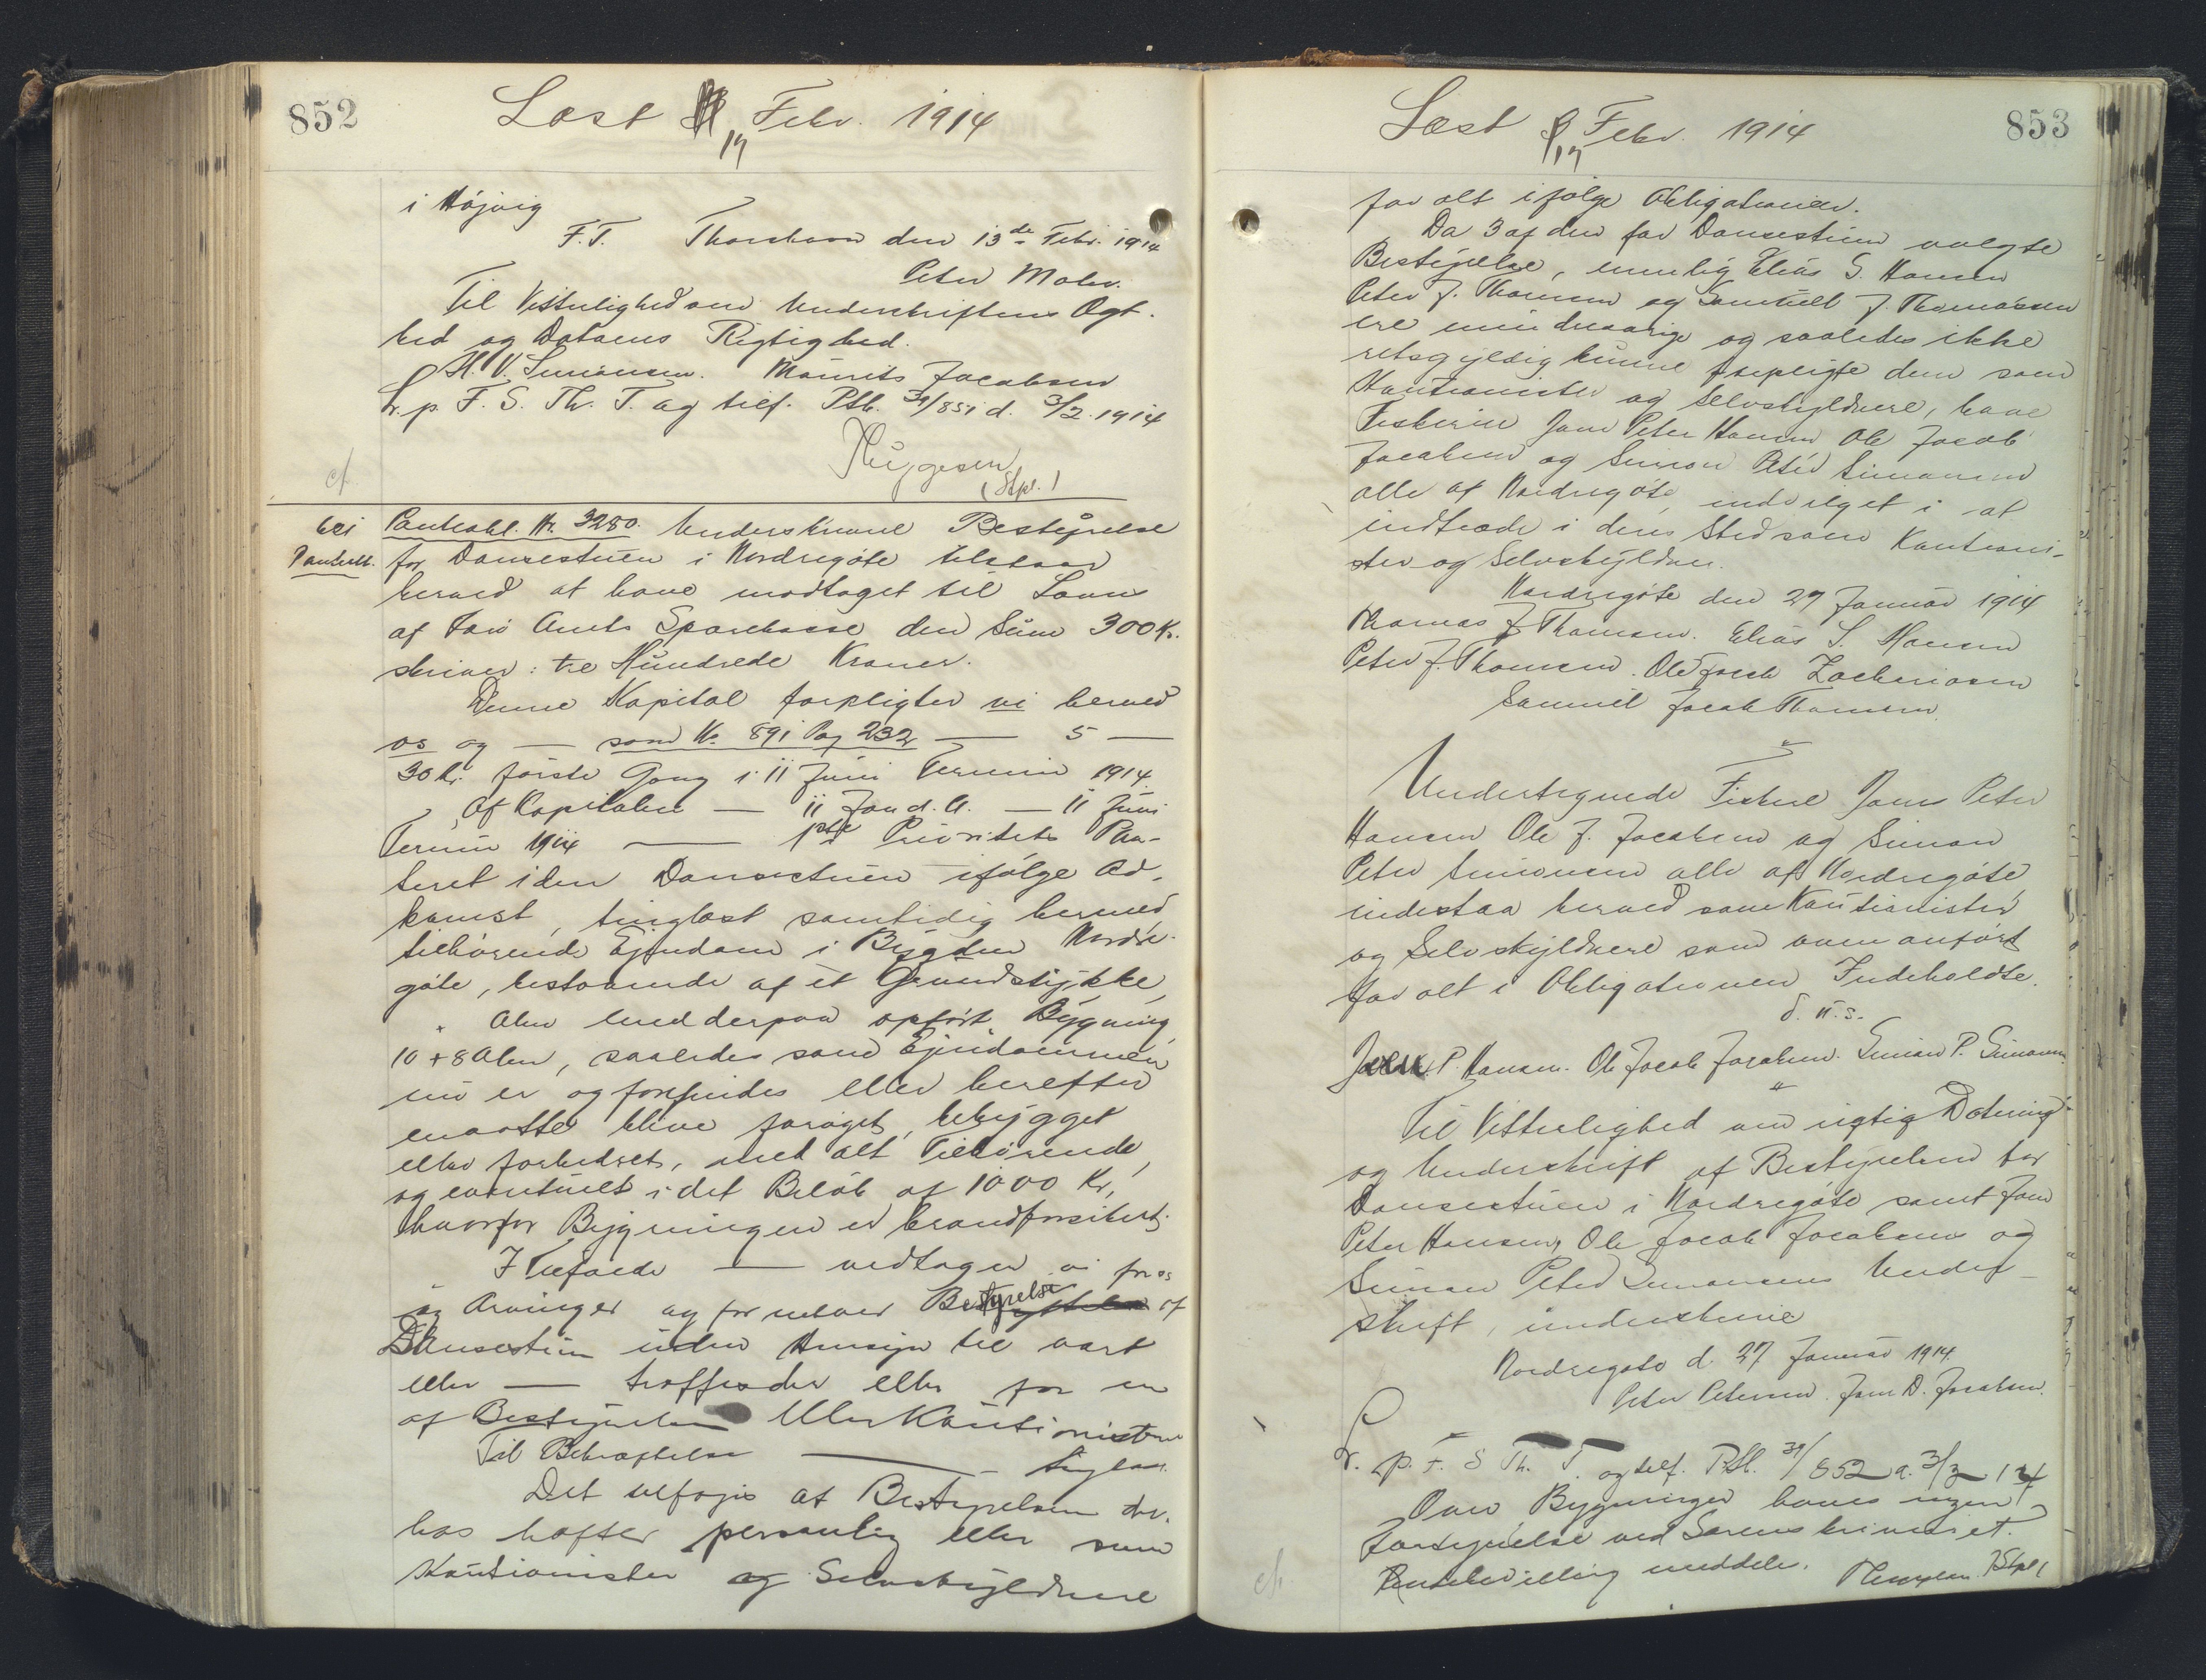 852
Læst 17 Febr. 1914
i Højvig
F.T. Thorshavn den 13de Febr. 1914
Peter Mohr.
Til Vitterlighed om Underskriftens Ægt-
hed og Datoens Rigtighed.
H. V. Simonsen. Maurits Jacobsen
Lr. p. F. S. Th. T. og self. Ptb. 31/851 d. 3/2 1914
(Stpl.)
cf.
Pantebl.
Panteobl. Nr. 3280. Underskrevne Bestyrelse
for Dansestuen i Nordregøte tilstaar
herved at have modtaget til Laans
af Færø Amts Sparekasse den Sum 300 Kr.
skriver: tre Hundrede Kroner.
Denne Kapital forpligter vi herved
os og — som Nr. 891 Pag 232 — 5 —
30 Kr. første Gang i 11 Juni Termin 1914.
Af Kapitalen — 11 Jan d. A. — 11 Juni
Termin 1914 — 1ste Prioritets Pan-
teret i den Dansestuen ifølge Ad-
komst, tinglæst samtidig hermed,
tilhørende Ejendom i Bygden Nordre-
gøte, bestaaende af et Grundstykke,
" Alen med derpaa opført Bygning
10 + 8 Alen, saaledes som Ejendommen
nu er og forefindes eller herefter
maatte blive forøget, bebygget
eller forbedret, med alt Tilhørende,
og eventuelt i det Beløb af 1000 Kr,
hvorfor Bygningen er brandforsikret.
I Tilfælde — vedtager vi for os
og Arvinger og for enhver Bestyrelse af
Dansestuen uden Hensyn til vort
eller — træffendes eller for en
af Bestyrelsen eller Kautionisterne
Til Bekræftelse —
Det tilføjes at Bestyrelsen
hos hæfter personlig eller som
Kautionister og Selvskyldnere
Læst 17 Febr. 1914
853
for alt ifølge Obligationen.
Da 3 af den for Dansestuen valgte
Bestyrelse, nemlig Elias S. Hansen
Peter J. Thomsen og Samuel J. Thomassen
ere mindreaarige og saaledes ikke
retsgyldig kunne forpligte dem som
Kautionister og Selvskyldnere, have
Fiskerne Jens Peter Hansen Ole Jacob
Jacobsen og Simon Peter Simonsen
alle af Nordregøte indvilget i at
indtræde i deres Sted som Kautioni-
ster og Selvskyldnere.
Nordregøte den 27 Januar 1914
Thomas J Thomsen. Elias S. Hansen
Peter J. Thomsen. Ole Jacob Zachariasen
Samuel Jacob Thomsen
"
Undertegnede Fiskere Jens Peter
Hansen Ole J. Jacobsen og Simon
Peter Simonsen alle af Nordregøte
indestaa herved som Kautionister
og Selvskyldnere som oven anført
for alt i Obligationen Indeholdte.
d. u. s.
Jens P. Hansen. Ole Jacob Jacobsen. Simon P. Simonsen.
"
Til Vitterlighed om rigtig Datering
og Underskrift af Bestyrelsen for
Dansestuen i Nordregøte samt Jens
Peter Hansens, Ole Jacob Jacobsens og
Simon Peter Simonsens Under-
skrift, underskrive
Nordregøte d. 27 Januar 1914
Peter Petersen. Jens D. Jacobsen.
Lr. p. F. S Th. T. og self. Ptb. 31/852 d. 3/2 14
Over Bygningen haves ingen
Fortegnelse ved Sorenskriveriet.
meddeles.
cf.